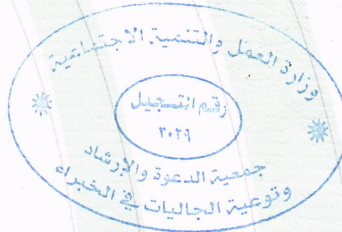 وزارة العمل والتنمية الاجتماعية
رقم التسجيل
٣٠٢٩
جمعية الدعوة والإرشاد
وتوعية الجاليات في الخبراء